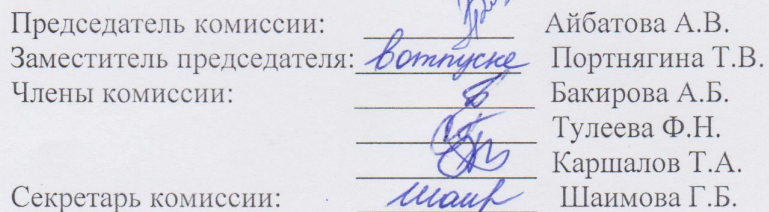 Председатель комиссии: Айбатова А.В.
Заместитель председателя: вотпуске Портнягина Т.В.
Члены комиссии: Бакирова А.Б.
Тулеева Ф.Н.
Каршалов Т.А.
Секретарь комиссии: Шаимова Г.Б.